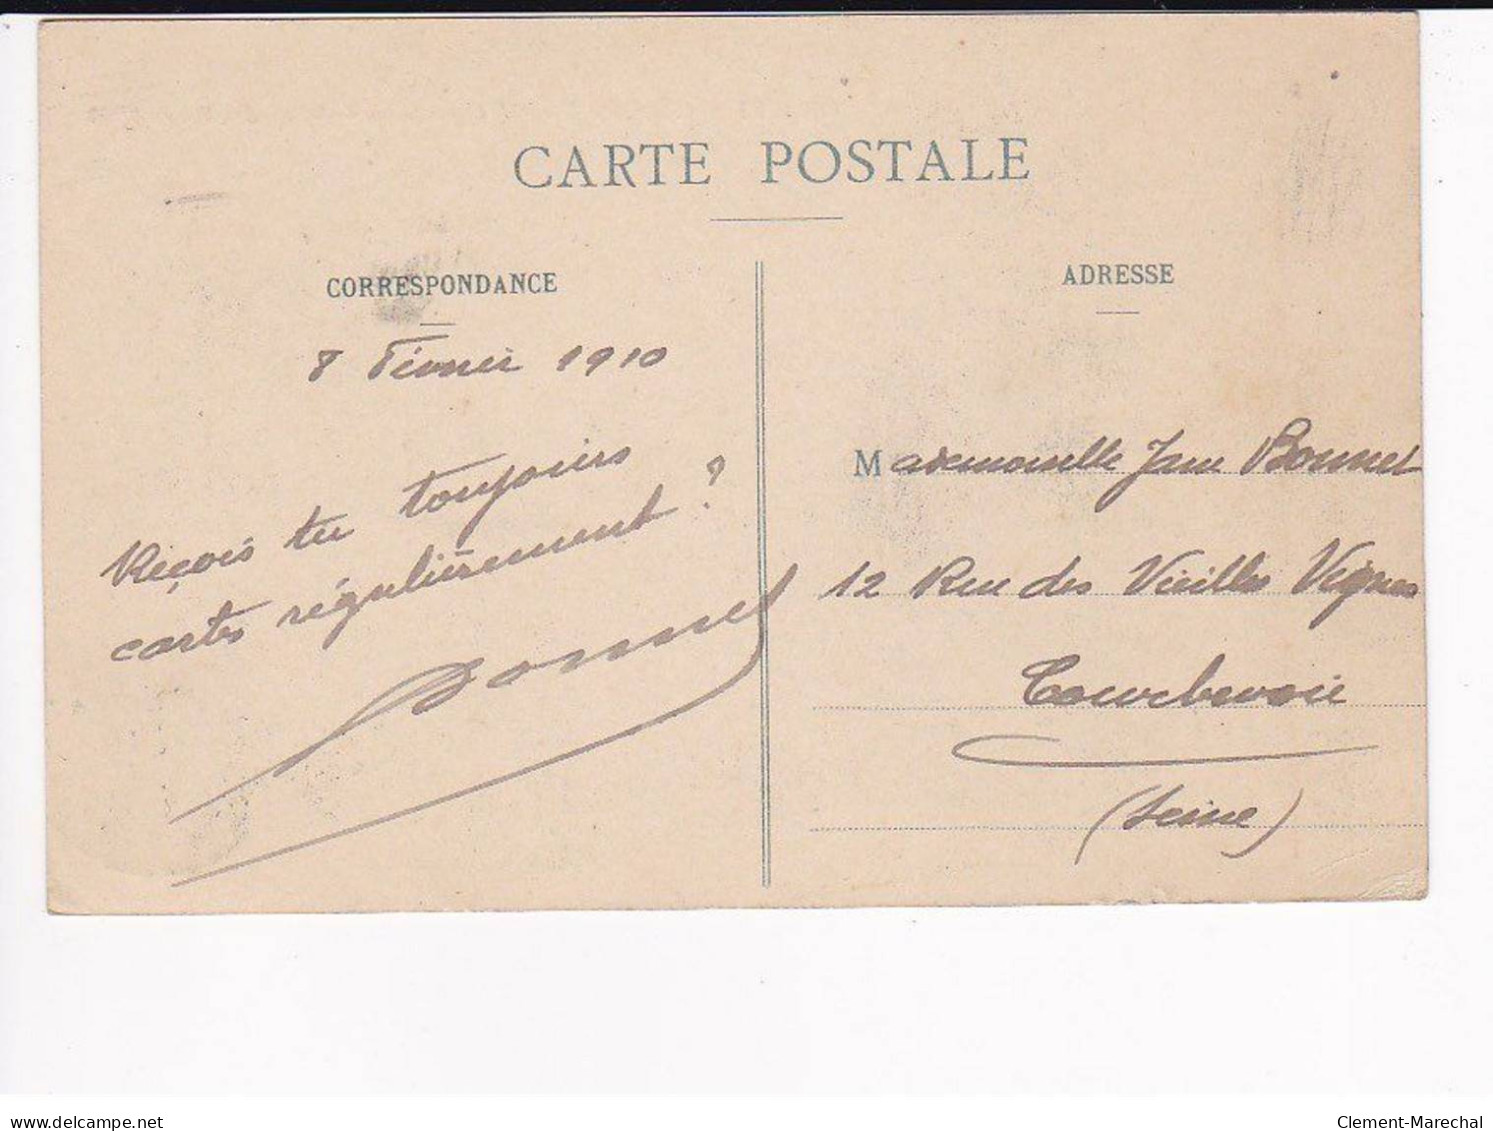 CARTE POSTALE
CORRESPONDANCE
8 Février 1910
Reçois tu toujours
cartes régulièrement ?
Bonnet
ADRESSE
Mademoiselle Jane Bonnet
12 Rue des Vieilles Vignes
Courbevoie
(Seine)
delcampe.net
Clement-Marechal